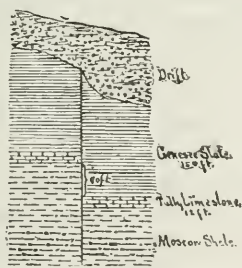 Drift
Genesee Slate,
150 ft.
60 ft
Tully Limestone,
12 ft.
Moscow Shale.